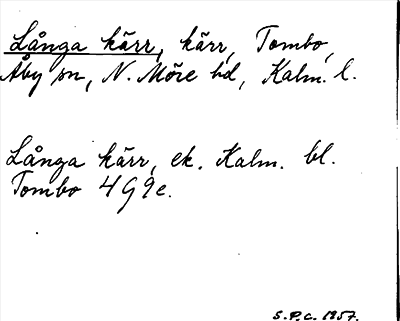 Långa kärr, kärr, Tombo,
Åby sn, N. Möre hd, Kalm. l.
Långa kärr, ek. Kalm. bl.
Tombo 4G9e.
S.P.C. 1957.